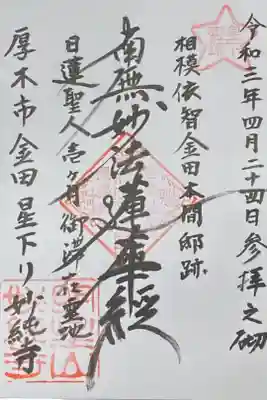 令和三年四月二十四日参拝之砌
相模依智金田本間邸跡
南無妙法蓮華経
日蓮聖人壱ヶ月御滞在霊地
厚木市金田星下り妙純寺